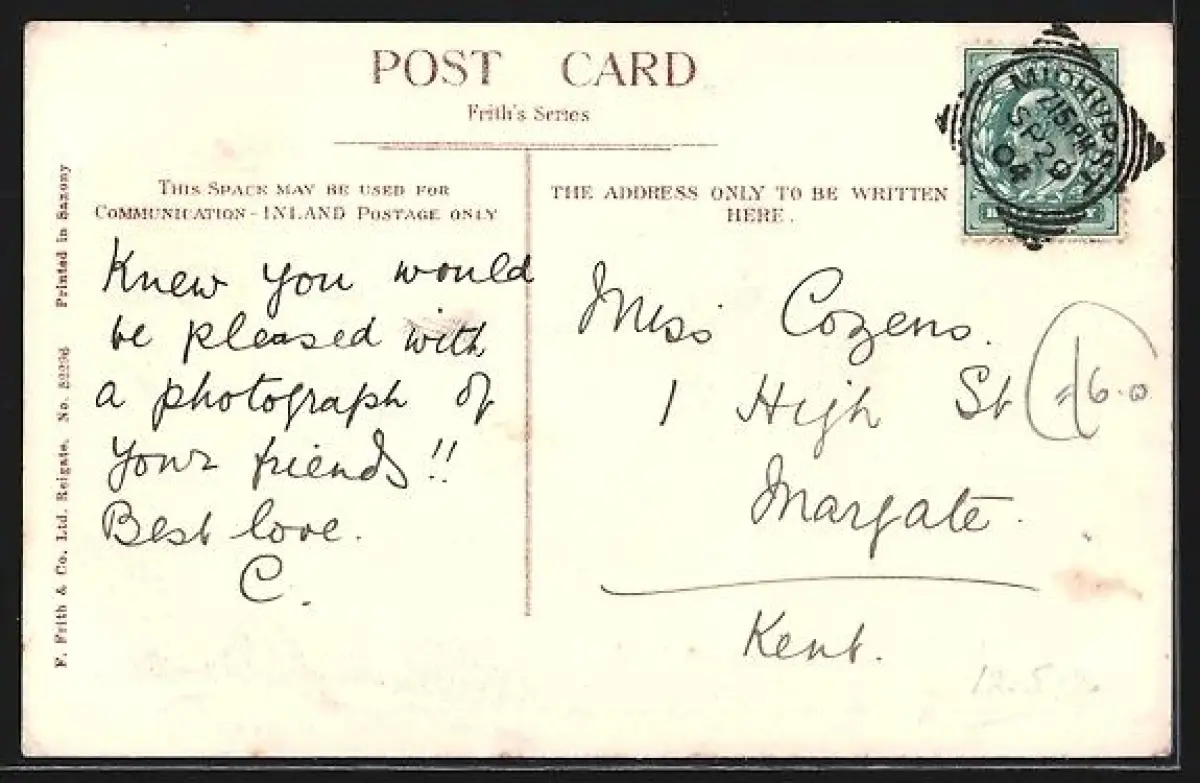 POST CARD
Frith's Series
THIS SPACE MAY BE USED FOR
COMMUNICATION - INLAND POSTAGE ONLY
THE ADDRESS ONLY TO BE WRITTEN
HERE.
Knew you would
be pleased with
a photograph of
your friends!!
Best love.
C.
Miss Cozens.
1 High St
Margate.
Kent.
MIDHURST
7.15 PM
SP 29
04
F. Frith & Co. Ltd. Reigate. No. Printed in Saxony